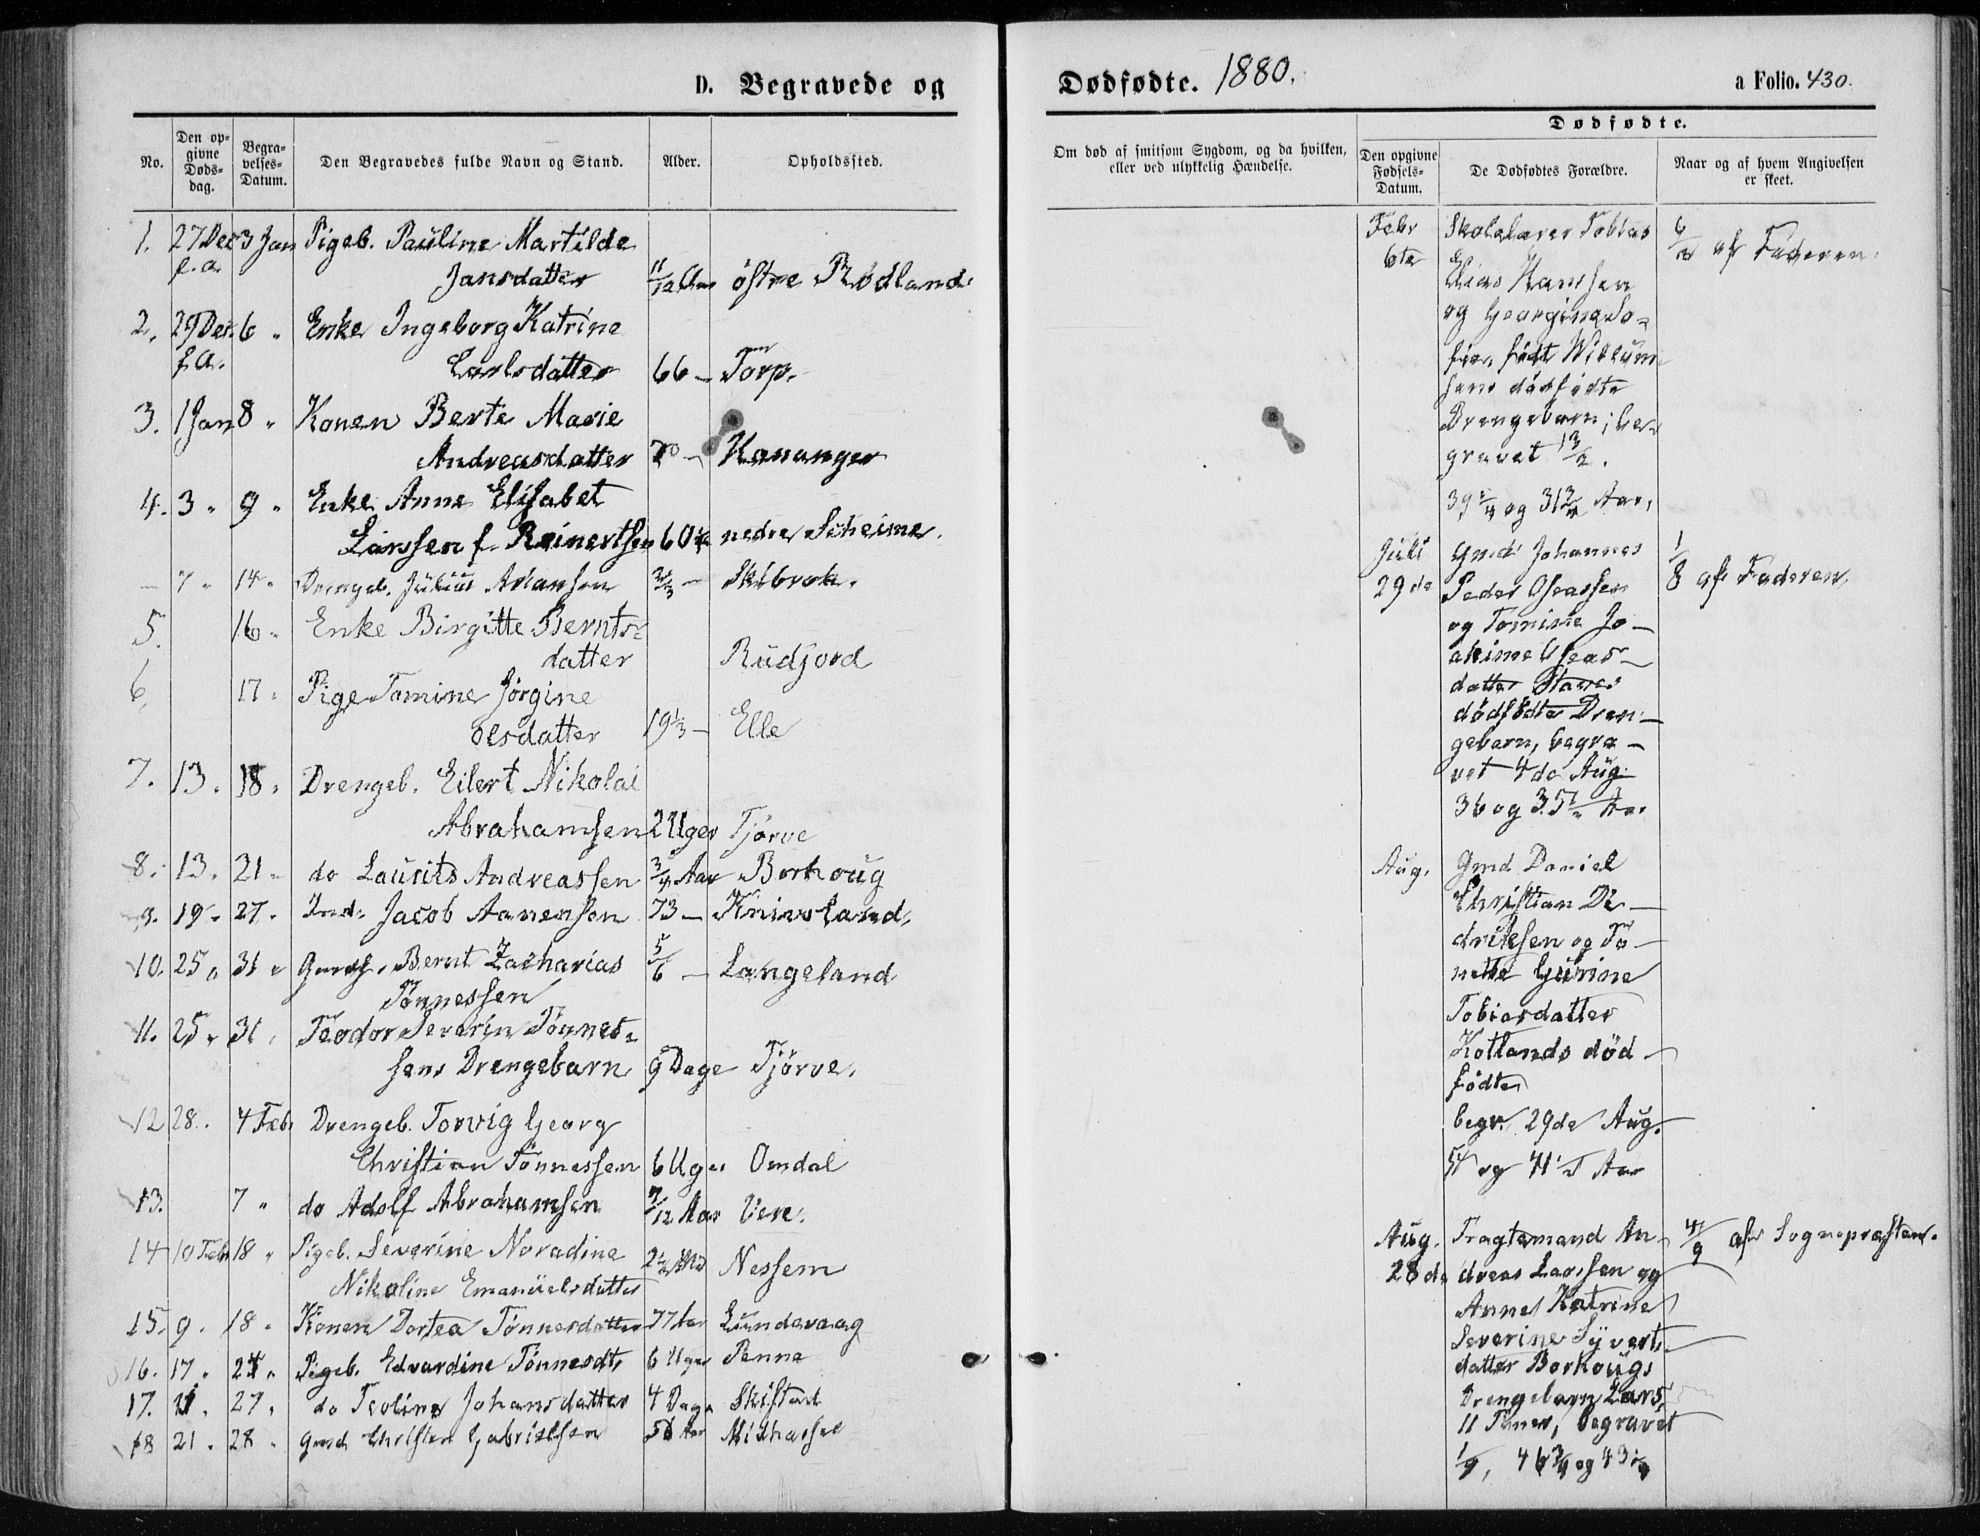 D. Begravede og
No.
Den opgivne Dødsdag.
Begravelses-Datum.
Den Begravedes fulde Navn og Stand.
Alder.
Opholdssted.
1. 27 Dec 3 Jan Pigeb. Pauline Martilde
f.a. Jansdatter 11/12 Aar östre Rödland
2. 29 Dec. 6 " Enke Ingeborg Katrine
f.a. Carlsdatter 66 — Torp.
3. 1 Jan 8 " Konen Berte Marie
Andreasdatter 70 — Kananger
4. 3 " 9 " Enke Anne Elisabet
Larssen f. Reinertsen 60 nedre Scheime.
— 7 " 14 " Drengeb. Julius Ariansen — Skibrok.
5. 16 " Enke Birgitte Bernts-
datter Rudjord
6. 17 " Pige Tomine Jörgine
Olsdatter 19 1/3 — Elle
7. 13. 18 " Drengeb. Eilert Nikolai
Abrahamsen 2 Uger Tjörve
8. 13. 21 " do Laurits Andreassen 3/4 Aar Borhoug
9. 19 " 27 " Ind. Jacob Aanensen 73 — Knivsland.
10. 25 " 31 " Bernt Zacharias 5/6 — Langeland
Tönnessen
11. 25 " 31 " Teodor Severin Tönnes-
sens Drengebarn 9 Dage Tjörve.
12 28. 4 Feb. Drengeb. Torvig Georg
Christian Tönnessen 6 Uger Omdal
13. 7 " do Adolf Abrahamsen 7/12 Aar Vere.
14 10 Feb 18 " Pigeb. Severine Noradine Nessem
Nikoline Emanuelsdatter
15. 9. 18 " Konen Dortea Tönnesdatter 77 Aar Lundevaag
16. 17 " 24 " Pigeb. Edvardine Tönnesdt. 6 Uger Penne
17. 27 " do Teoline Johansdatter 4 Dage Skistad
18 21 " 28 " Gmd Christen Gabrielsen 56 Aar Midhassel
Dødfødte. 1880.
a Folio. 430.
Om død af smitsom Sygdom, og da hvilken,
eller ved ulykkelig Hændelse.
Dødfødte.
Den opgivne Fødsels-Datum.
De Dødfødtes Forældre.
Naar og af hvem Angivelsen er skeet.
Febr Skolelærer Tobias 6/2 af Faderen.
6te Elias Hanssen
og Georgine So-
fie, födt Willum-
sens dödfödte
Drengebarn; be-
gravet 13/2.
og 31 3/4 Aar.
Juli Gmd Johannes 1/8 af Faderen.
29de Peder Oseassen
og Tomine Jo-
akime Oseas-
datter
dödfödte Dren-
gebarn, begra-
vet 4de Aug.
36 og 35 Aar
Aug. Gmd Daniel
Christian Di-
driksen og To-
nette Gurine
Tobiasdatter
Kotlands död-
födte
begr. 29de Aug.
54 og 41 Aar
Aug. Fragtemand An- 4/9 af Sognepræsten.
28de dreas Larssen og
Anne Katrine
Severine Syverts-
datter Borhougs
Drengebarn Lars,
11 Timer, begravet
1/9, 46 3/4 og 43